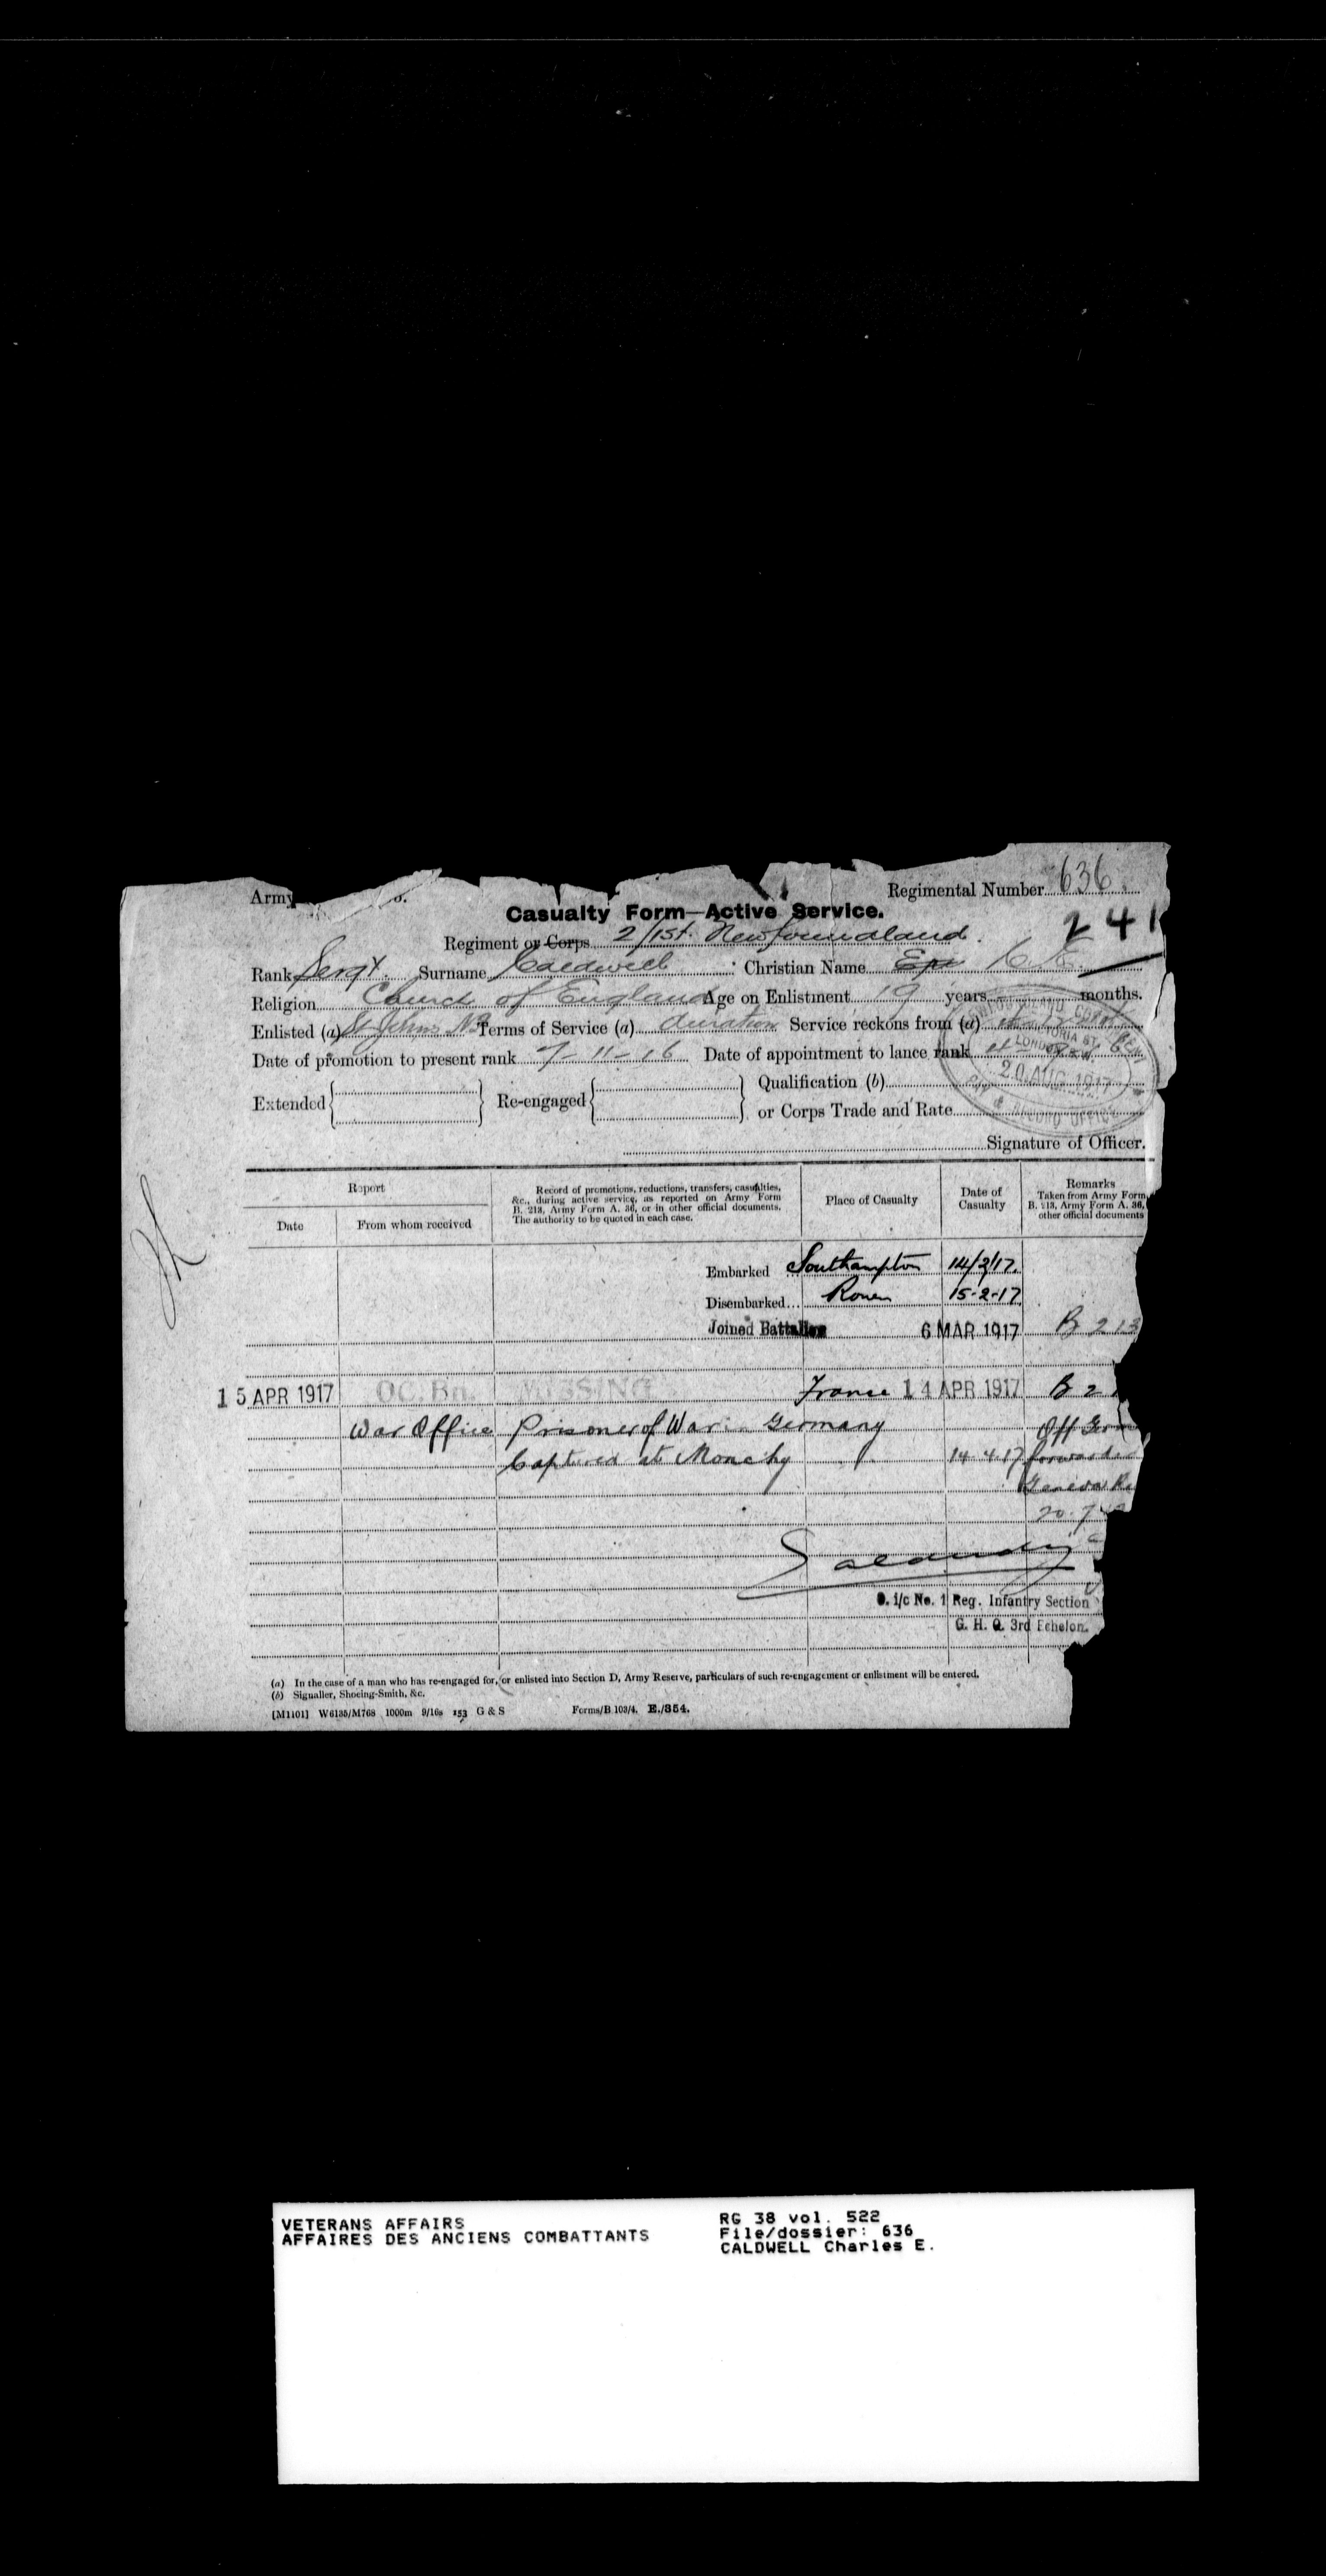 Army
Regimental Number 636
Casualty Form—Active Service.
241
Regiment or Corps 2/1st. Newfoundland
Rank Sergt. Surname Caldwell Christian Name C. E.
Religion Church of England Age on Enlistment 19 years months.
Enlisted (a) St Johns Terms of Service (a) duration Service reckons from (a)
Date of promotion to present rank 7-11-16 Date of appointment to lance rank
Extended Re-engaged Qualification (b)
or Corps Trade and Rate
20 AUG 1917
Signature of Officer.
Report
Date From whom received
Record of promotions, reductions, transfers, casualties,
&c., during active service, as reported on Army Form
B. 213, Army Form A. 36, or in other official documents.
The authority to be quoted in each case.
Place of Casualty
Date of
Casualty
Remarks
Taken from Army Form
B. 213, Army Form A. 36,
other official documents
Embarked Southampton 14/2/17.
Disembarked... Rouen 15-2-17
Joined Battalion 6 MAR 1917 B 213
15 APR 1917 OC. Bn. MISSING France 14 APR 1917 B 2
War Office Prisoner of War in Germany Off
Captured at Monchy 14.4.17 forwarded
Geneva
20.7
O. i/c No. 1 Reg. Infantry Section
G. H. Q. 3rd Echelon.
(a) In the case of a man who has re-engaged for, or enlisted into Section D, Army Reserve, particulars of such re-engagement or enlistment will be entered.
(b) Signaller, Shoeing-Smith, &c.
[M1101] W6135/M768 1000m 9/16s 153 G & S Forms/B 103/4. E./354.
VETERANS AFFAIRS
AFFAIRES DES ANCIENS COMBATTANTS
RG 38 vol. 522
File/dossier: 636
CALDWELL Charles E.